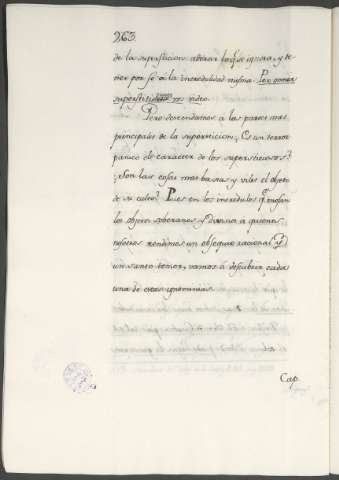 263.
de la supersticion adorar lo q.e ignora, y te-
ner por fe á la incredulidad misma. Per omnia
video.
Pero descendamos a las partes mas
principales de la supersticion. Es un terror
panico el caracter de los supersticiosos?
¿Son las cosas mas baxas y viles el objeto
de su culto? Pues en los incredulos q.e mofan
los objetos soberanos y divinos a quienes
nosotros rendimos un obsequio racional y
un santo temor, vamos á descubrir cada
una de estas ignominias.
Cap.